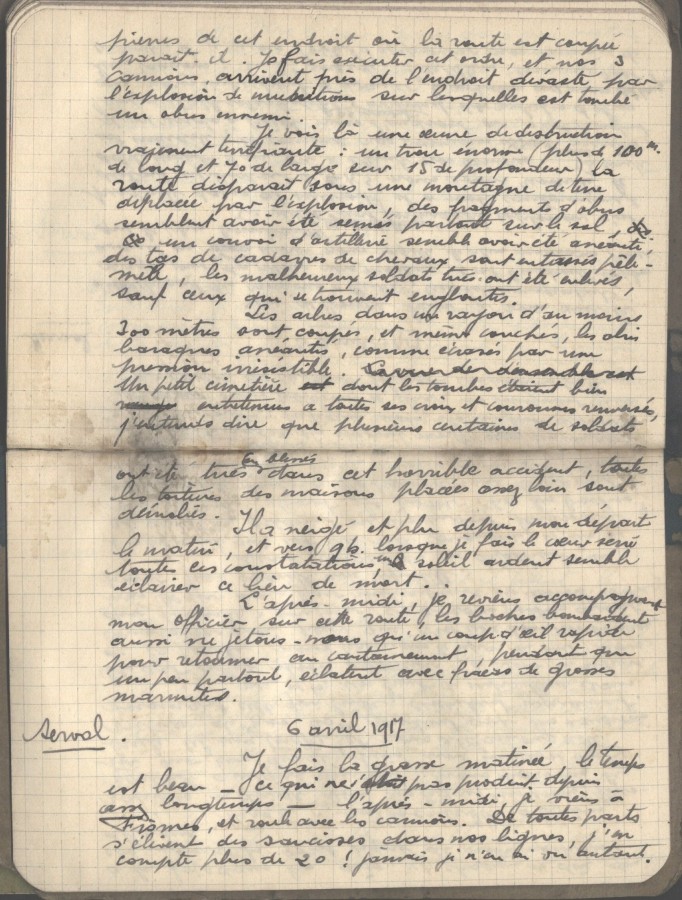 pierres de cet endroit où la route est coupée
parait-il. Je fais exécuter cet ordre, et nos 3
camions arrivent près de l'endroit dévasté par
l'explosion de munitions sur lesquelles est tombé
un obus ennemi.
Je vois là une œuvre de destruction
vraiment terrifiante : un trou énorme (plus de 100 m.
de long et 70 de large sur 15 de profondeur) la
route disparait sous une montagne de terre
déplacée par l'explosion, des fragments d'obus
semblent avoir été semés partout sur le sol,
un convoi d'artillerie semble avoir été anéanti,
des tas de cadavres de chevaux sont entassés pêle-
mêle, les malheureux soldats tués ont été enlevés,
sauf ceux qui se trouvent engloutis.
Les arbres dans un rayon d'au moins
300 mètres sont coupés, et même couchés, les abris
baraques anéantis, comme écrasés par une
pression irrésistible.
Un petit cimetière est dont les tombes étaient bien
entretenues a toutes ses croix et couronnes renversées,
j'entends dire que plusieurs centaines de soldats
ont été tués ou blessés dans cet horrible accident, toutes
les toitures des maisons placées assez loin sont
démolies.
Il a neigé et plu depuis mon départ
le matin, et vers 9h. lorsque je fais le cœur serré
toutes ces constatations, un soleil ardent semble
éclairer ce lieu de mort..
L'après-midi, je reviens accompagnant
mon officier sur cette route, les boches bombardent
aussi ne jetons-nous qu'un coup d'œil rapide
pour retourner au cantonnement, pendant que
un peu partout, éclatent avec fracas de grosses
marmites.
Serval. 6 avril 1917
Je fais la grasse matinée, le temps
est beau - ce qui ne s'était pas produit depuis
assez longtemps - l'après-midi, je viens à
Fismes, et roule avec les camions. De toutes parts
s'élèvent des saucisses dans nos lignes, j'en
compte plus de 20 ! jamais je n'en ai vu autant.